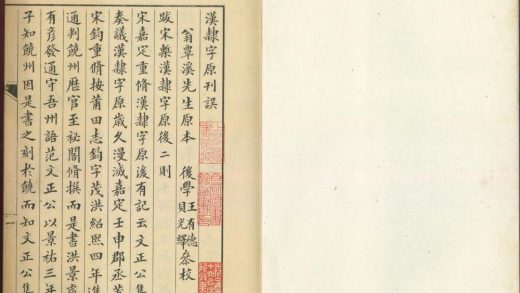 漢隸字原刊誤
翁覃溪先生原本
後學王有德
貝光繹叅校
跋宋槧漢隸字原後二則
宋嘉定重脩漢隸字原後有記云文正公
奏議漢隸字原歲久漫減嘉定壬申郡丞
宋鈞重脩按莆田志鈞字茂洪紹熙四年進
通判饒州歷官至祕閣修撰而是書洪景盧
有彦發通守吾州語范文正公以景祐三年
子知饒州因是書之刻於饒而知文正公集